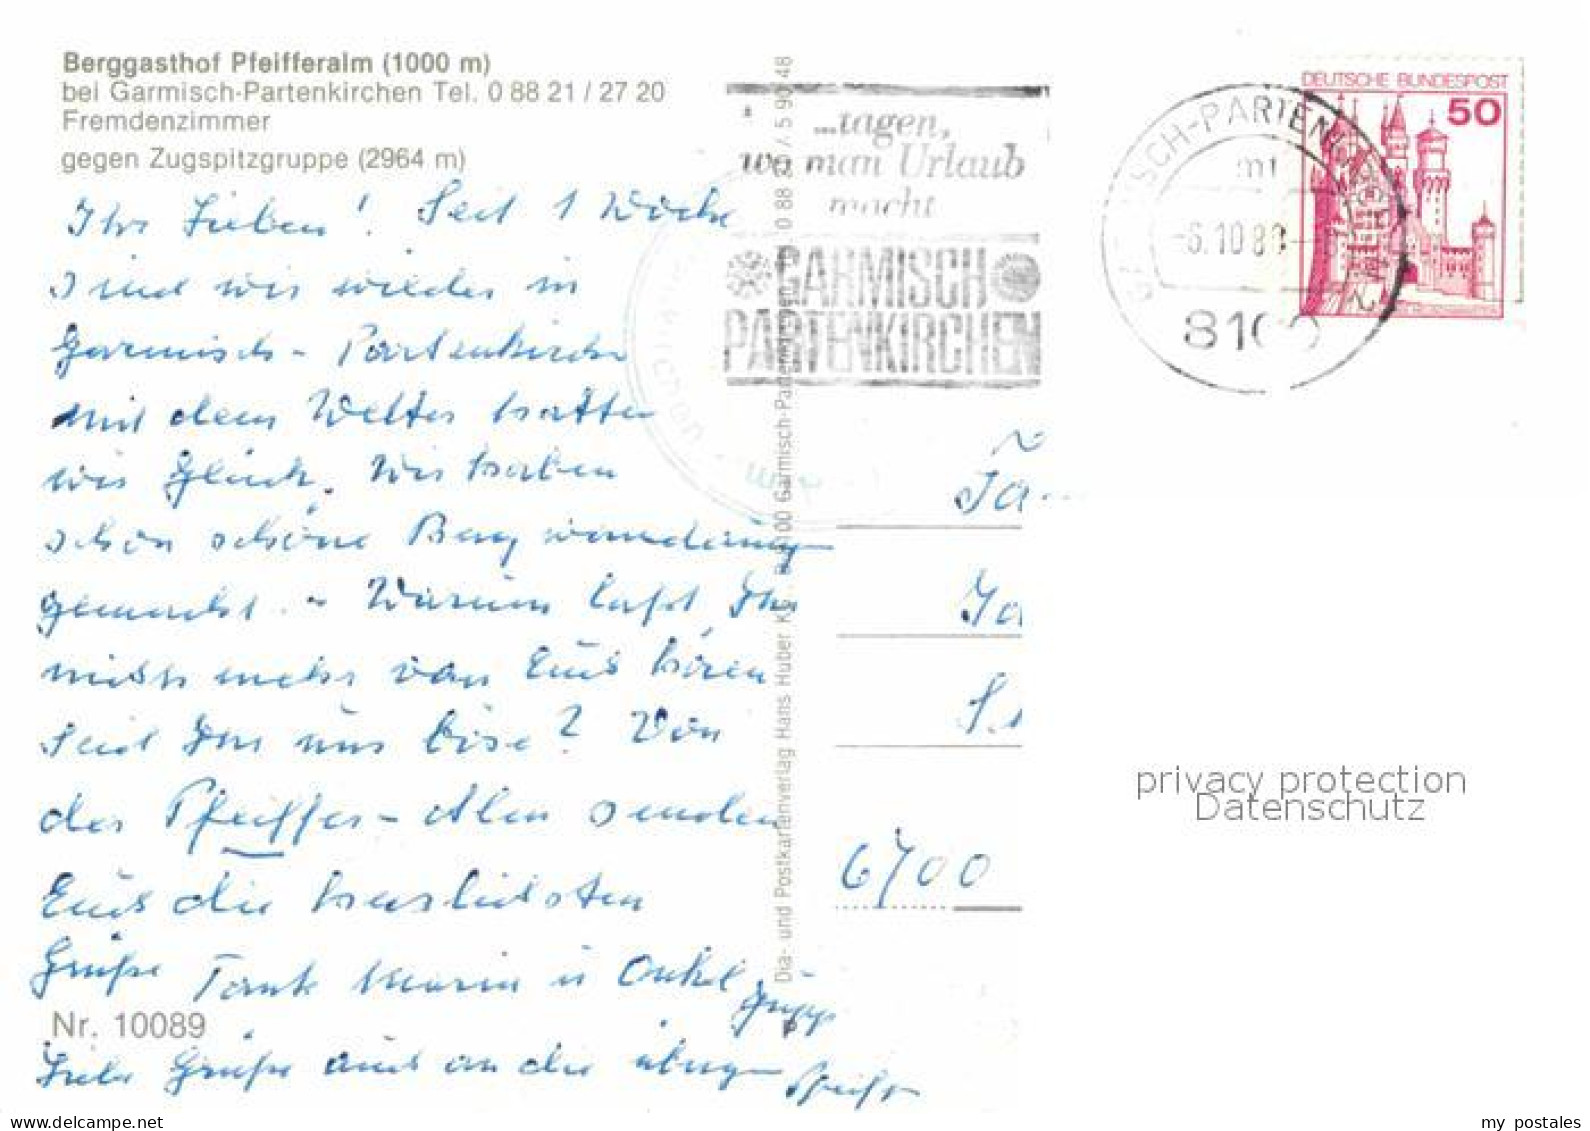 Berggasthof Pfeifferalm (1000 m)
bei Garmisch-Partenkirchen Tel. 0 88 21 / 27 20
Fremdenzimmer
gegen Zugspitzgruppe (2964 m)
Ihr Lieben! Seit 1 Woche
sind wir wieder in
Garmisch-Partenkirchen
mit dem Wetter hatten
wir Glück. Wir haben
schon schöne Bergwanderung
gemacht. - Warum laßt Ihr
nichts mehr von Euch hören
Seid Ihr uns böse? Von
der Pfeiffer-Alm senden
Euch die herzlichsten
Grüße Tante Maria u Onkel
Nr. 10089
Liebe Grüße auch an die übrigen
Dia- und Postkartenverlag Hans Huber KG, 8100 Garmisch-Partenkirchen
...tagen,
wo man Urlaub
macht
GARMISCH
PARTENKIRCHEN
DEUTSCHE BUNDESPOST
50
GARMISCH-PARTENK
-6.10.80
8100
6700
privacy protection
Datenschutz
my postales